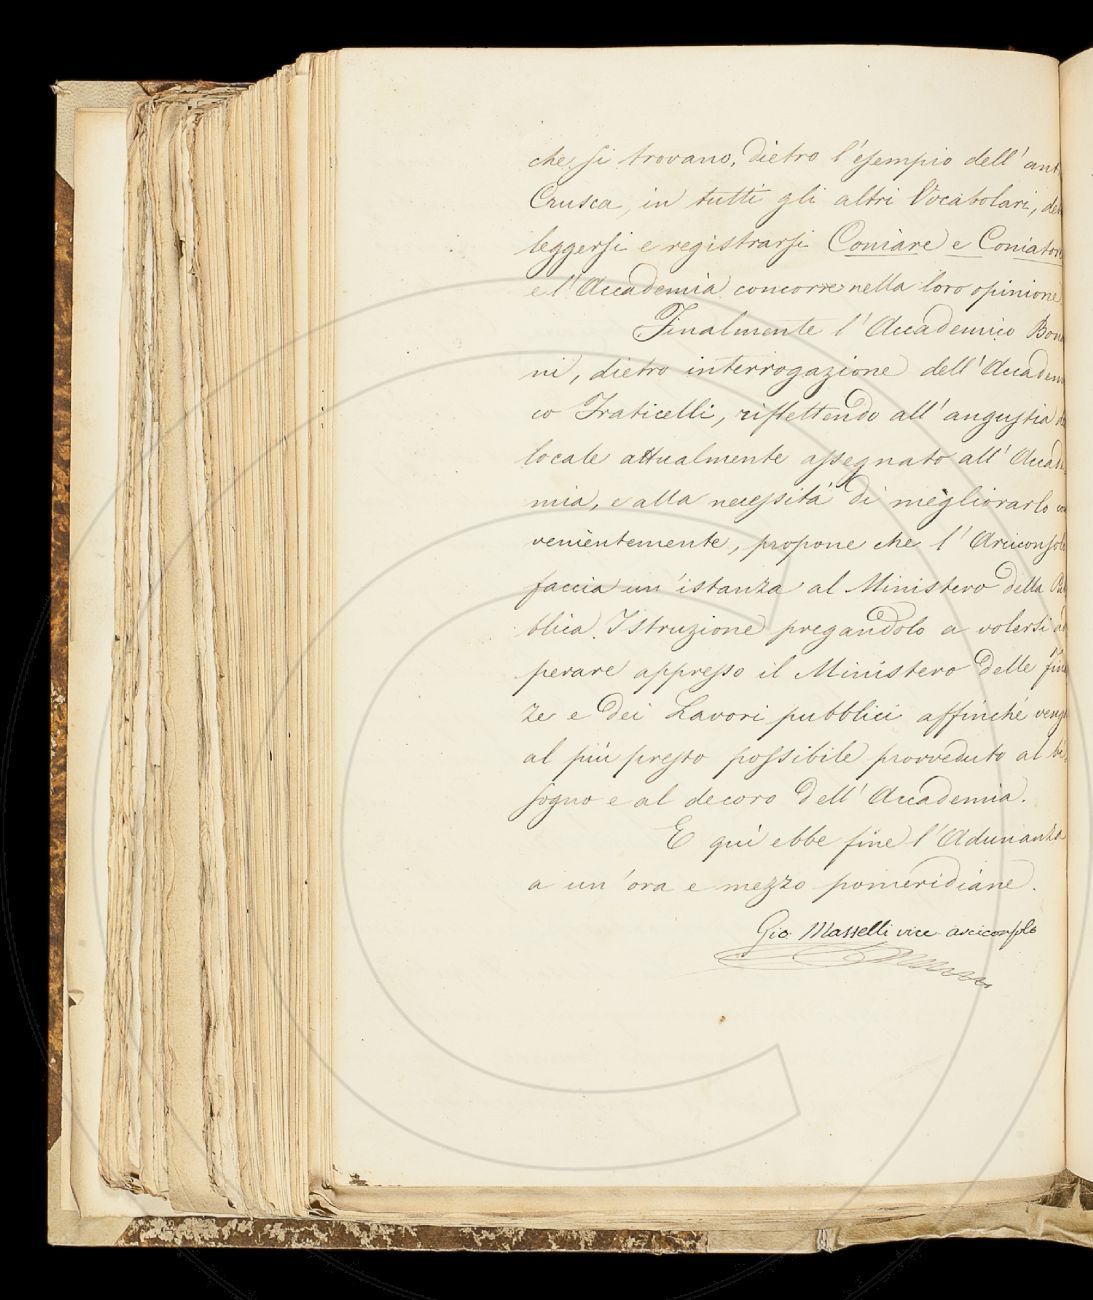 che si trovano, dietro l'esempio dell'ant
Crusca, in tutti gli altri Vocabolari, deb
leggersi e registrarsi Coniare e Coniatore
e l'Accademia concorre nella loro opinione.
Finalmente l'Accademico Bona
ni, dietro interrogazione dell'Accademi
co Fraticelli, riflettendo all'angustia del
locale attualmente assegnato all'Accade
mia, e alla necessità di megliorarlo con
venientemente, propone che l'Arciconsolo
faccia un'istanza al Ministero della Pub
blica Istruzione pregandolo a volersi ado
perare appresso il Ministero delle finan
ze e dei Lavori pubblici affinché venga
al più presto possibile provveduto al bi
sogno e al decoro dell'Accademia.
E qui ebbe fine l'Adunanza
a un'ora e mezzo pomeridiane.
Gio. Masselli vice arciconsolo